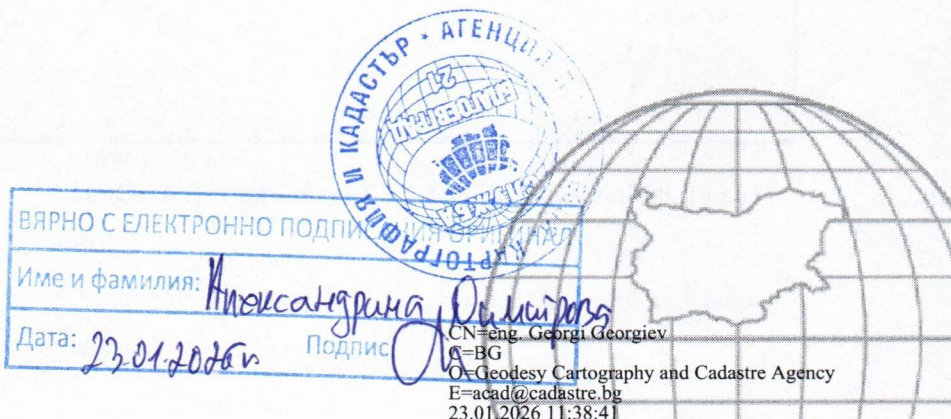 КАРТОГРАФИЯ И КАДАСТЪР • АГЕНЦИЯ
21
БЛАГОЕВГРАД
СЛУЖБА
ВЯРНО С ЕЛЕКТРОННО ПОДПИСАНИЯ ОРИГИНАЛ
Име и фамилия: Александрина Димитрова
Дата: 23.01.2026г. Подпис
CN=eng. Georgi Georgiev
C=BG
O=Geodesy Cartography and Cadastre Agency
E=acad@cadastre.bg
23.01.2026 11:38:41